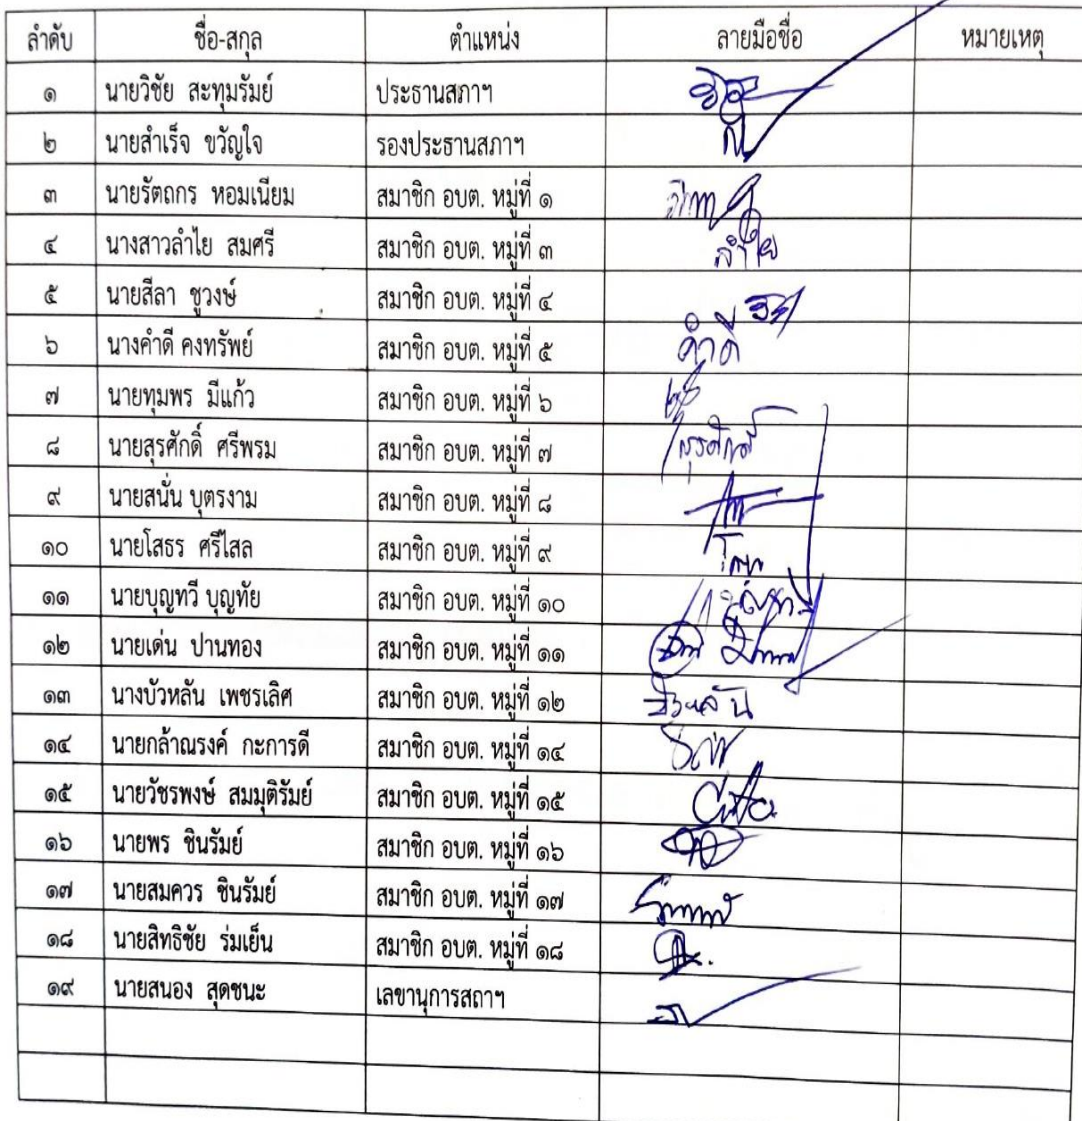 ลำดับ ชื่อ-สกุล ตำแหน่ง ลายมือชื่อ หมายเหตุ
๑ นายวิชัย สะทุมรัมย์ ประธานสภาฯ
๒ นายสำเร็จ ขวัญใจ รองประธานสภาฯ
๓ นายรัตถกร หอมเนียม สมาชิก อบต. หมู่ที่ ๑
๔ นางสาวลำไย สมศรี สมาชิก อบต. หมู่ที่ ๓ ลำไย
๕ นายสีลา ชูวงษ์ สมาชิก อบต. หมู่ที่ ๔
๖ นางคำดี คงทรัพย์ สมาชิก อบต. หมู่ที่ ๕ คำดี
๗ นายทุมพร มีแก้ว สมาชิก อบต. หมู่ที่ ๖
๘ นายสุรศักดิ์ ศรีพรม สมาชิก อบต. หมู่ที่ ๗ สุรศักดิ์
๙ นายสนั่น บุตรงาม สมาชิก อบต. หมู่ที่ ๘
๑๐ นายโสธร ศรีไสล สมาชิก อบต. หมู่ที่ ๙
๑๑ นายบุญทวี บุญทัย สมาชิก อบต. หมู่ที่ ๑๐
๑๒ นายเด่น ปานทอง สมาชิก อบต. หมู่ที่ ๑๑
๑๓ นางบัวหลัน เพชรเลิศ สมาชิก อบต. หมู่ที่ ๑๒ บัวหลัน
๑๔ นายกล้าณรงค์ กะการดี สมาชิก อบต. หมู่ที่ ๑๔
๑๕ นายวัชรพงษ์ สมมุติรัมย์ สมาชิก อบต. หมู่ที่ ๑๕
๑๖ นายพร ชินรัมย์ สมาชิก อบต. หมู่ที่ ๑๖
๑๗ นายสมควร ชินรัมย์ สมาชิก อบต. หมู่ที่ ๑๗
๑๘ นายสิทธิชัย ร่มเย็น สมาชิก อบต. หมู่ที่ ๑๘
๑๙ นายสนอง สุดชนะ เลขานุการสถาฯ